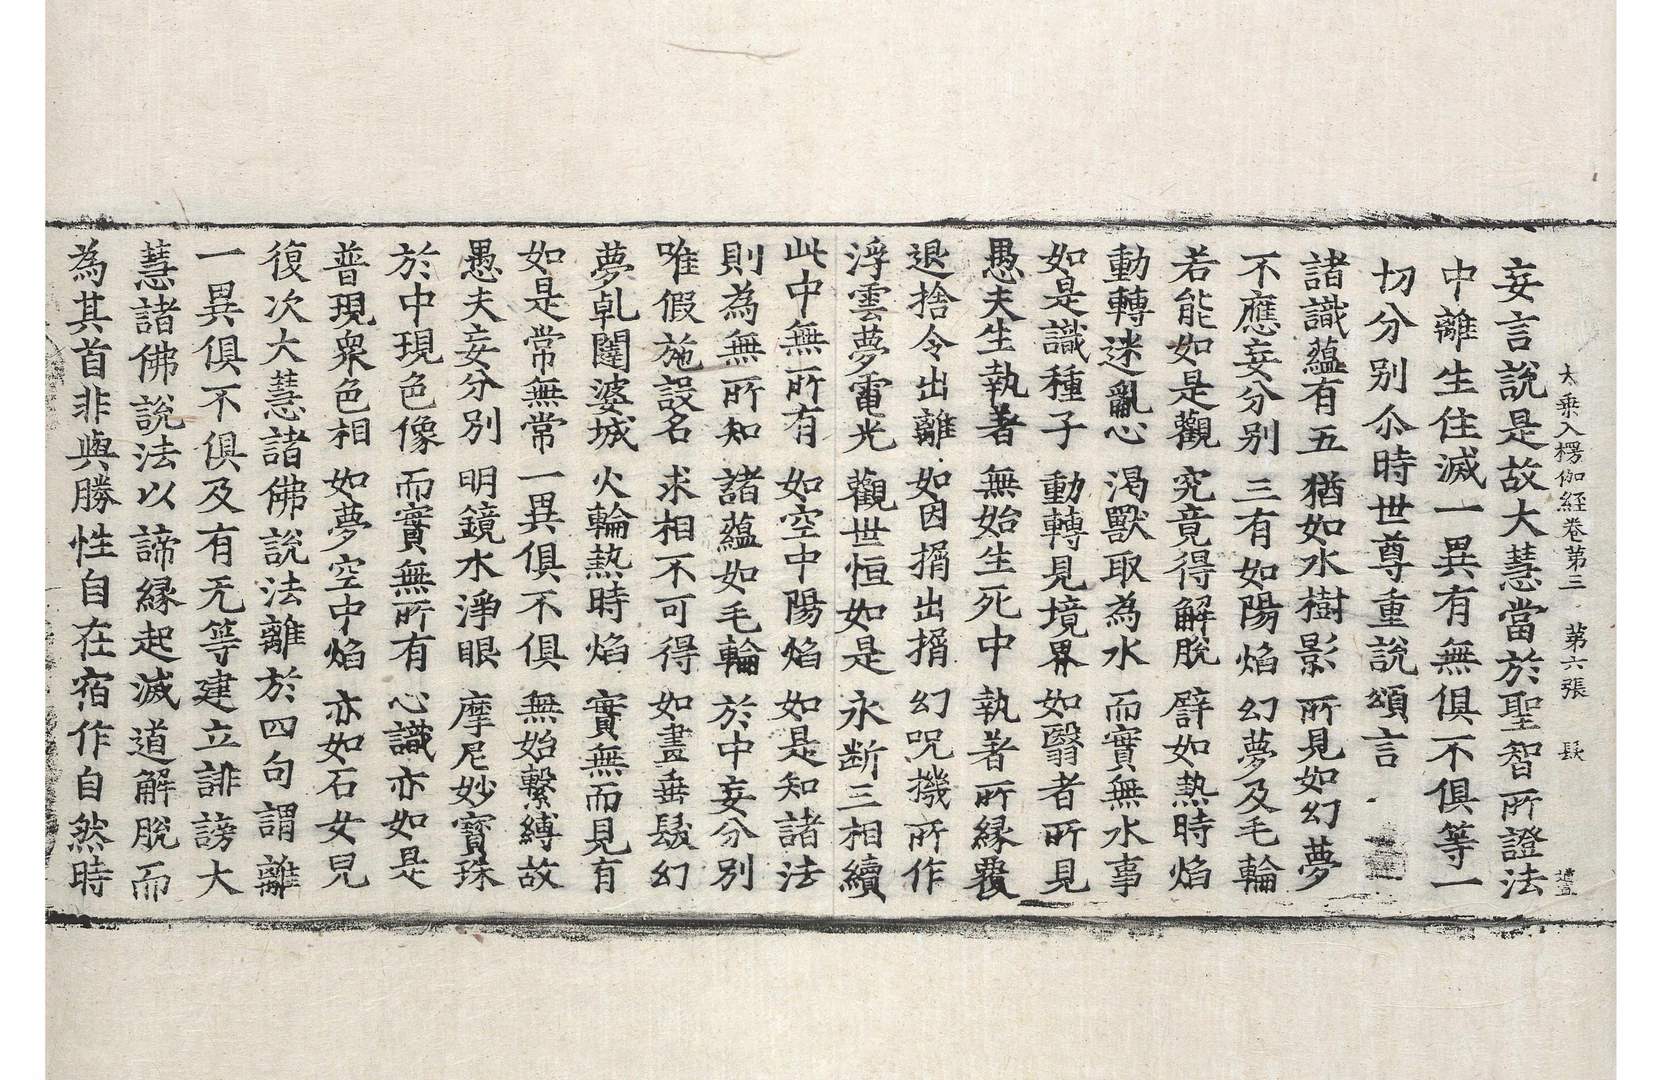 大乗入楞伽経卷第三 第六張 長
妄言說是故大慧當於聖智所證法
中離生住滅一異有無俱不俱等一
切分別尒時世尊重說頌言
諸識蘊有五 猶如水樹影 所見如幻夢
不應妄分別 三有如陽焰 幻夢及毛輪
若能如是觀 究竟得解脫 譬如熱時焰
動轉迷亂心 渴獸取為水 而實無水事
如是識種子 動轉見境界 如翳者所見
愚夫生執著 無始生死中 執著所緣覆
退捨令出離 如因揟出揟 幻呪機所作
浮雲夢電光 觀世恒如是 永断三相續
此中無所有 如空中陽焰 如是知諸法
則為無所知 諸蘊如毛輪 於中妄分別
唯假施設名 求相不可得 如畫垂髮幻
夢乹闥婆城 火輪熱時焰 實無而見有
如是常無常 一異俱不俱 無始繫縛故
愚夫妄分別 明鏡水淨眼 摩尼妙寳珠
於中現色像 而實無所有 心識亦如是
普現衆色相 如夢空中焰 亦如石女兒
復次大慧諸佛說法離於四句謂離
一異俱不俱及有无等建立誹謗大
慧諸佛說法以諦緣起滅道解脫而
為其首非與勝性自在宿作自然時